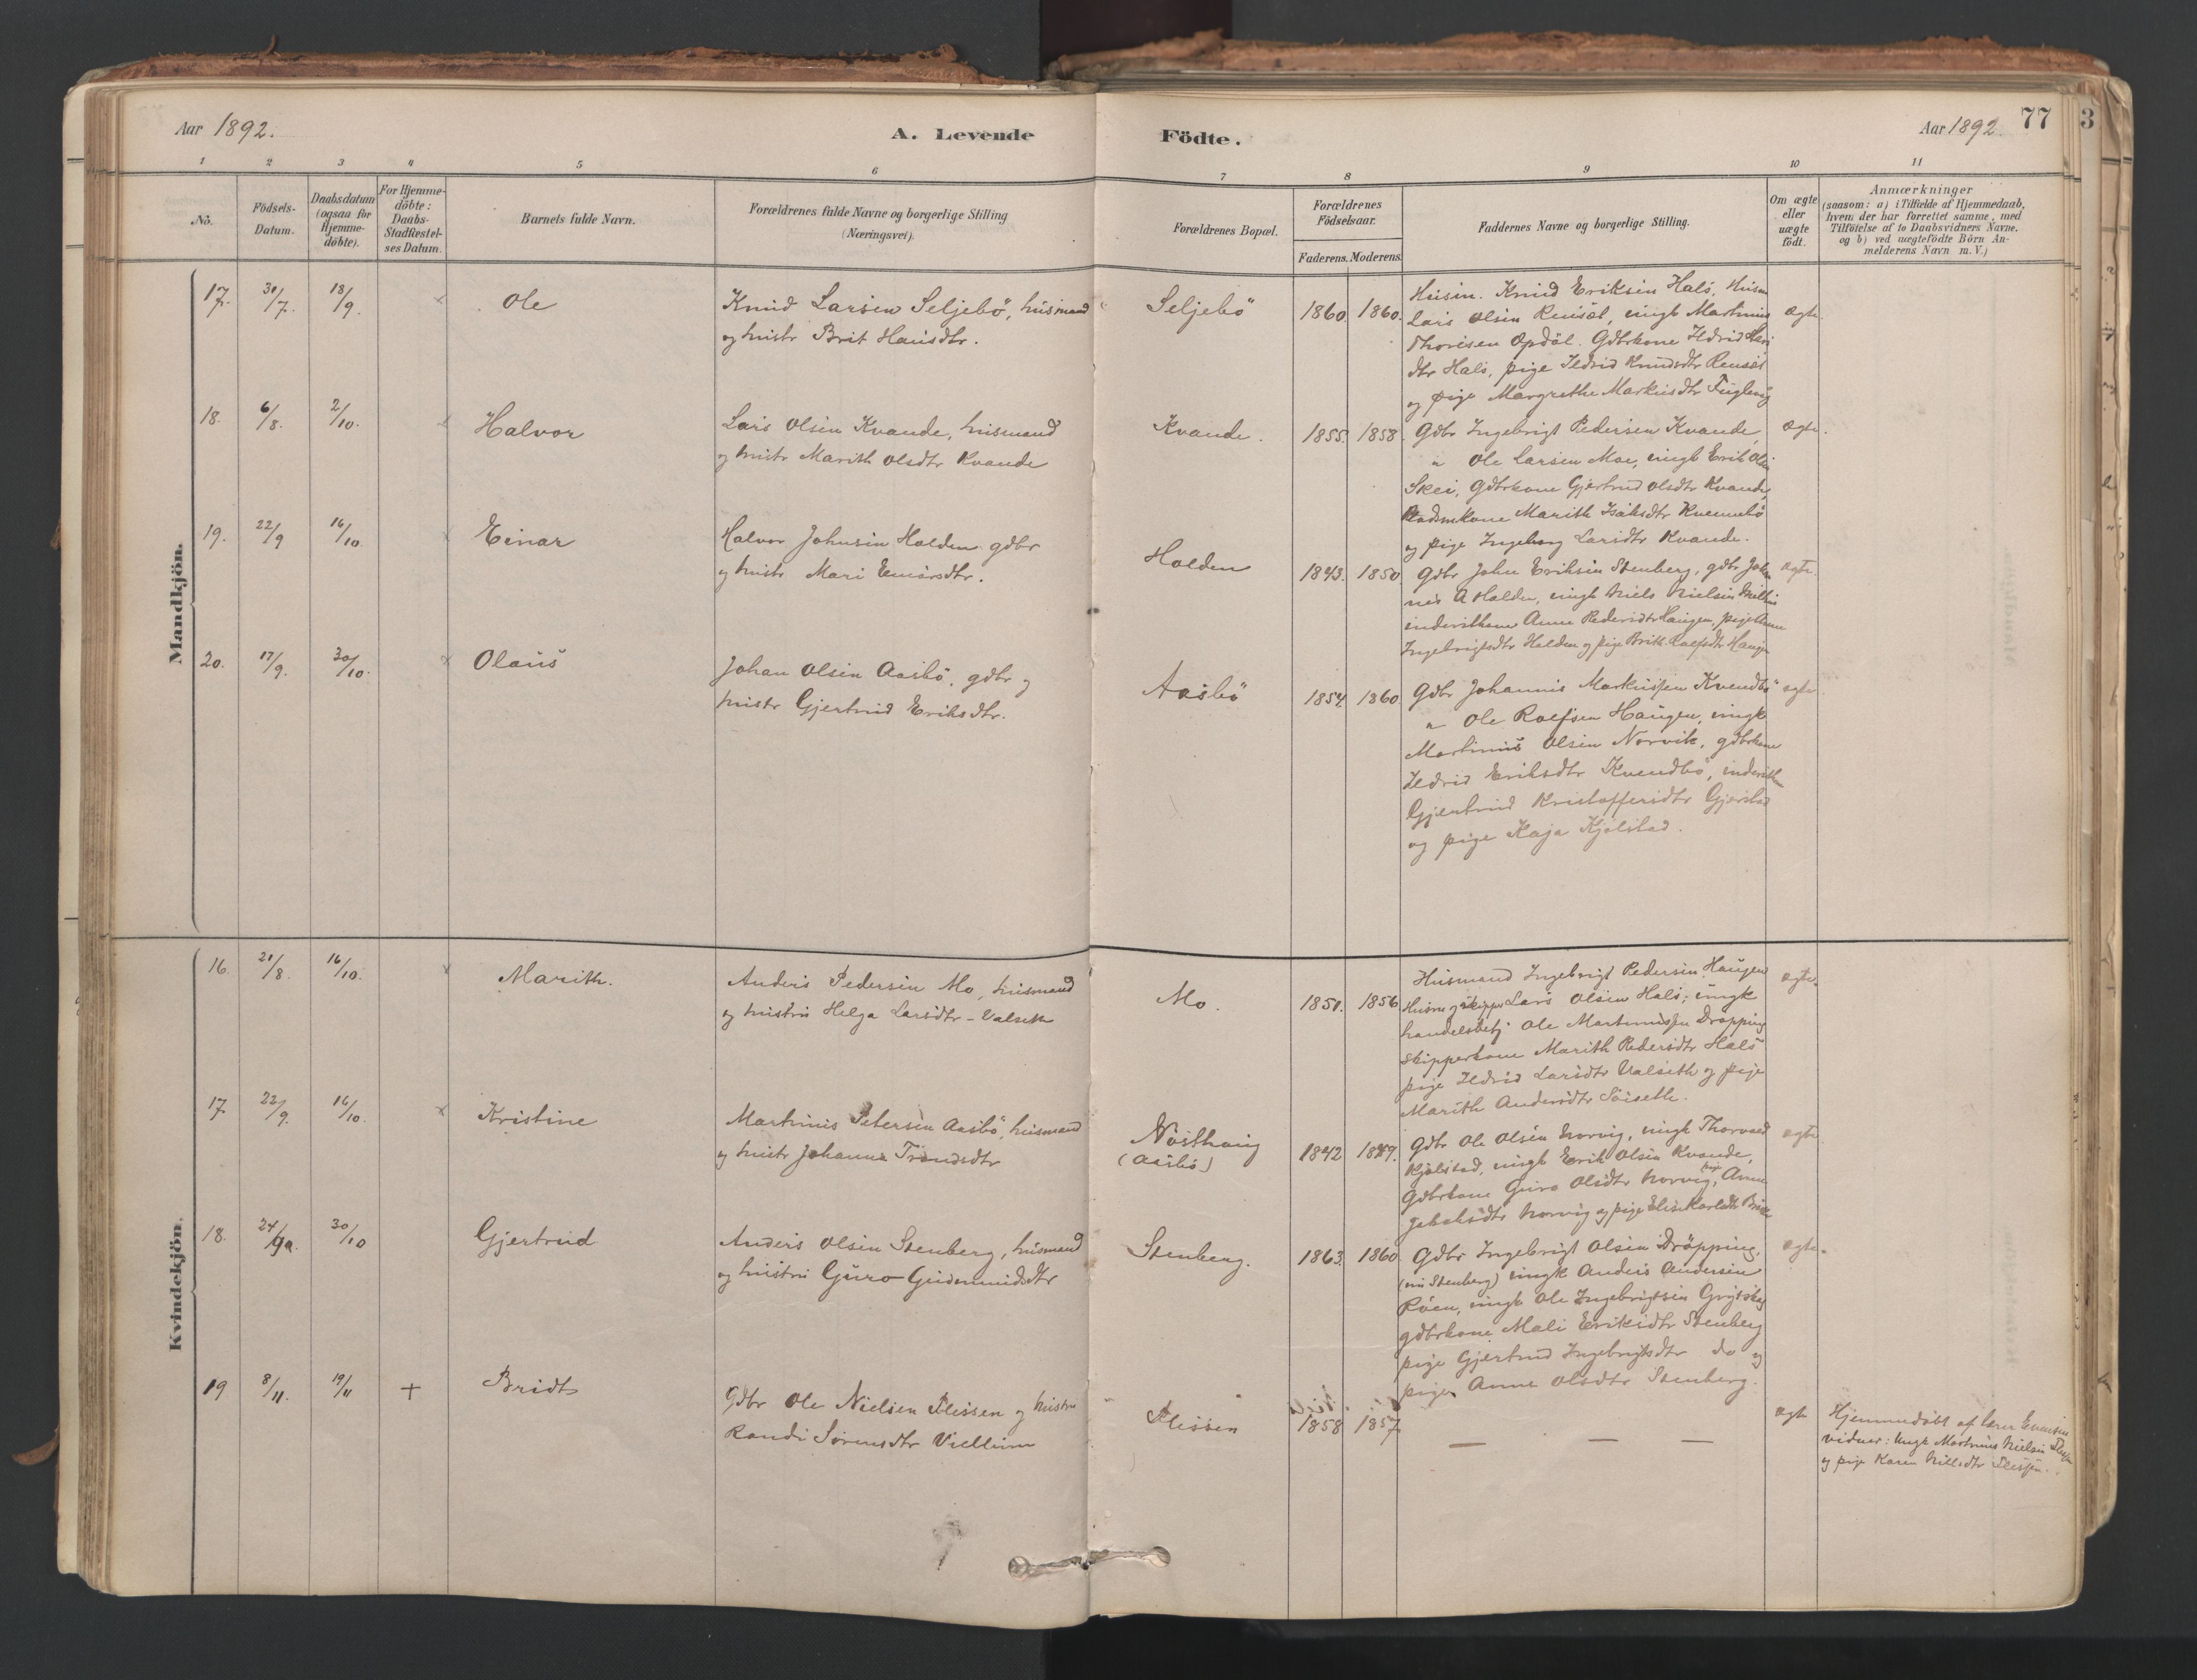 Aar 1892.
A. Levende
Födte.
Aar 1892.
77
3
1 2 3 4 5 6 7 8 9 10 11
No.
Födsels-
Datum.
Daabsdatum
(ogsaa for
Hjemme-
döbte).
For Hjemme-
döbte:
Daabs-
Stadfæstel-
ses Datum.
Barnets fulde Navn.
Forældrenes fulde Navne og borgerlige Stilling
(Næringsvei).
Forældrenes Bopæl.
Forældrenes
Födselsaar.
Faderens. Moderens.
Faddernes Navne og borgerlige Stilling.
Om ægte
eller
uægte
födt.
Anmærkninger
(saasom: a) i Tilfælde af Hjemmedaab,
hvem der har forrettet samme, med
Tilföielse af to Daabsvidners Navne.
og b) ved uægtefödte Börn An-
melderens Navn m. V.)
Mandkjön.
17. 31/7. 18/9. Ole
Knud Larsen Seljebö, husmand
og hustr Brit Hansdtr.
Seljebö 1860. 1860.
Husm. Knud Eriksen Hals, Husm
Lars Olsen Rensæt, ungk Martinus
Thoresen Opdöl. Gdbrkone Ildrid
dtr Hals, pige Ildrid Knudsdtr
og pige Margrethe Markusdtr Fuglevåg
ægte.
18. 6/8. 2/10. Halvor
Lars Olsen Kvande, husmand
og hustr Marith Olsdtr Kvande
Kvande. 1855. 1858.
Gdbr Ingebrigt Pedersen Kvande,
" Ole Larsen Moe, ungk Erik Olsen
Skei, Gdbrkone Gjertrud Olsdtr Kvande,
Marith Isaksdtr Kvennbö
og pige Ingeborg Larsdtr Kvande.
ægte.
19. 22/9 16/10. Einar
Halvor Johnsen Holden gdbr
og hustr Mari Einarsdtr.
Holden 1843. 1850
Gdbr John Eriksen Stenberg, gdbr Johan
nes A Halden, ungk Niels Nielsen
Anne Pedersdtr Haugen, pige Anne
Ingebrigtsdtr Holden og pige Brith Roefsdtr Haugen
ægte.
20. 17/9. 30/10. Olaus
Johan Olsen Aasbö, gdbr og
hustr Gjertrud Eriksdtr.
Aasbö 1854. 1860
Gdbr Johannis Markussen Kvendbö
" Ole Roefsen Haugen, ungk
Martinus Olsen Norvik, gdbrkone
Ildrid Eriksdtr Kvendbö,
Gjertrud Kristoffersdtr Gjerstad
og pige Kaja Kjölstad.
ægte
Kvindekjön.
16. 21/8. 16/10. Marith.
Anders Pedersen Mo, husmand
og hustru Helga Larsdtr - Valseth
Mo. 1851. 1856
Husmand Ingebrigt Pedersen Haugen
Husm og skipper Lars Olsen Hals; ungk
handelsbetj Ole Martinussen Dröpping
Skipperkone Marith Pedersdtr Hals
pige Ildrid Larsdtr Valseth og pige
Marith Andersdtr
ægte.
17. 22/9. 16/10. Kristine
Martinus Petersen Aasbö, husmand
og hustr Johanna Trondsdtr
Nösthaug
(Aasbö)
1842 1849.
Gdbr Ole Olsen Norvig, ungk Thorvald
Kjölstad, ungk Erik Olsen Kvande,
Gdbrkone Guro Olsdtr Norvig, pige Anne
Jakobsdtr Norvig og pige Elise Karlsdtr
ægte
18. 24/9. 30/10 Gjertrud
Anders Olsen Stenberg, husmand
og hustru Guro Gudmundsdtr
Stenberg. 1863. 1860.
Gdbr Ingebrigt Olsen Dröpping,
(nu Stenberg) ungk Anders Andersen
Röen, ungk Ole Ingebrigtsen
gdbrkone Mali Eriksdtr Stenberg
pige Gjertrud Ingebrigtsdtr do og
pige Anne Olsdtr Stenberg.
ægte.
19 8/11. 19/11 + Bridt
Gdbr Ole Nielsen Flessen og hustru
Randi Sörensdtr
Flessen 1858 1857.
— — —
ægte
Hjemmedöbt af lærer Evensen
vidner: Ungk Martinus Nielsen Flessen
og pige Karen Nilsdtr Flessen.